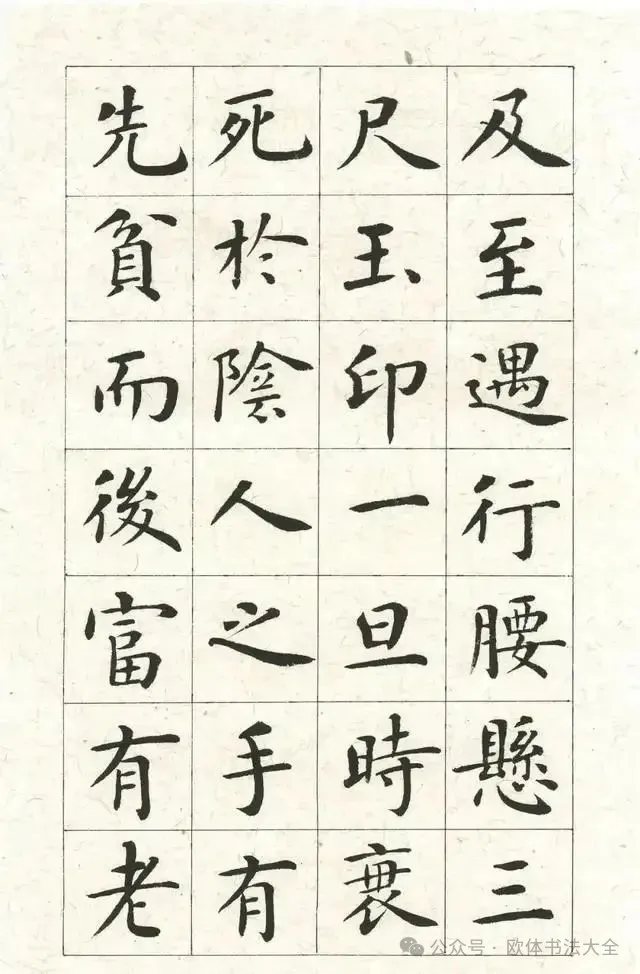 及至遇行腰懸三
尺玉印一旦時衰
死於陰人之手有
先貧而後富有老
公众号·欧体书法大全